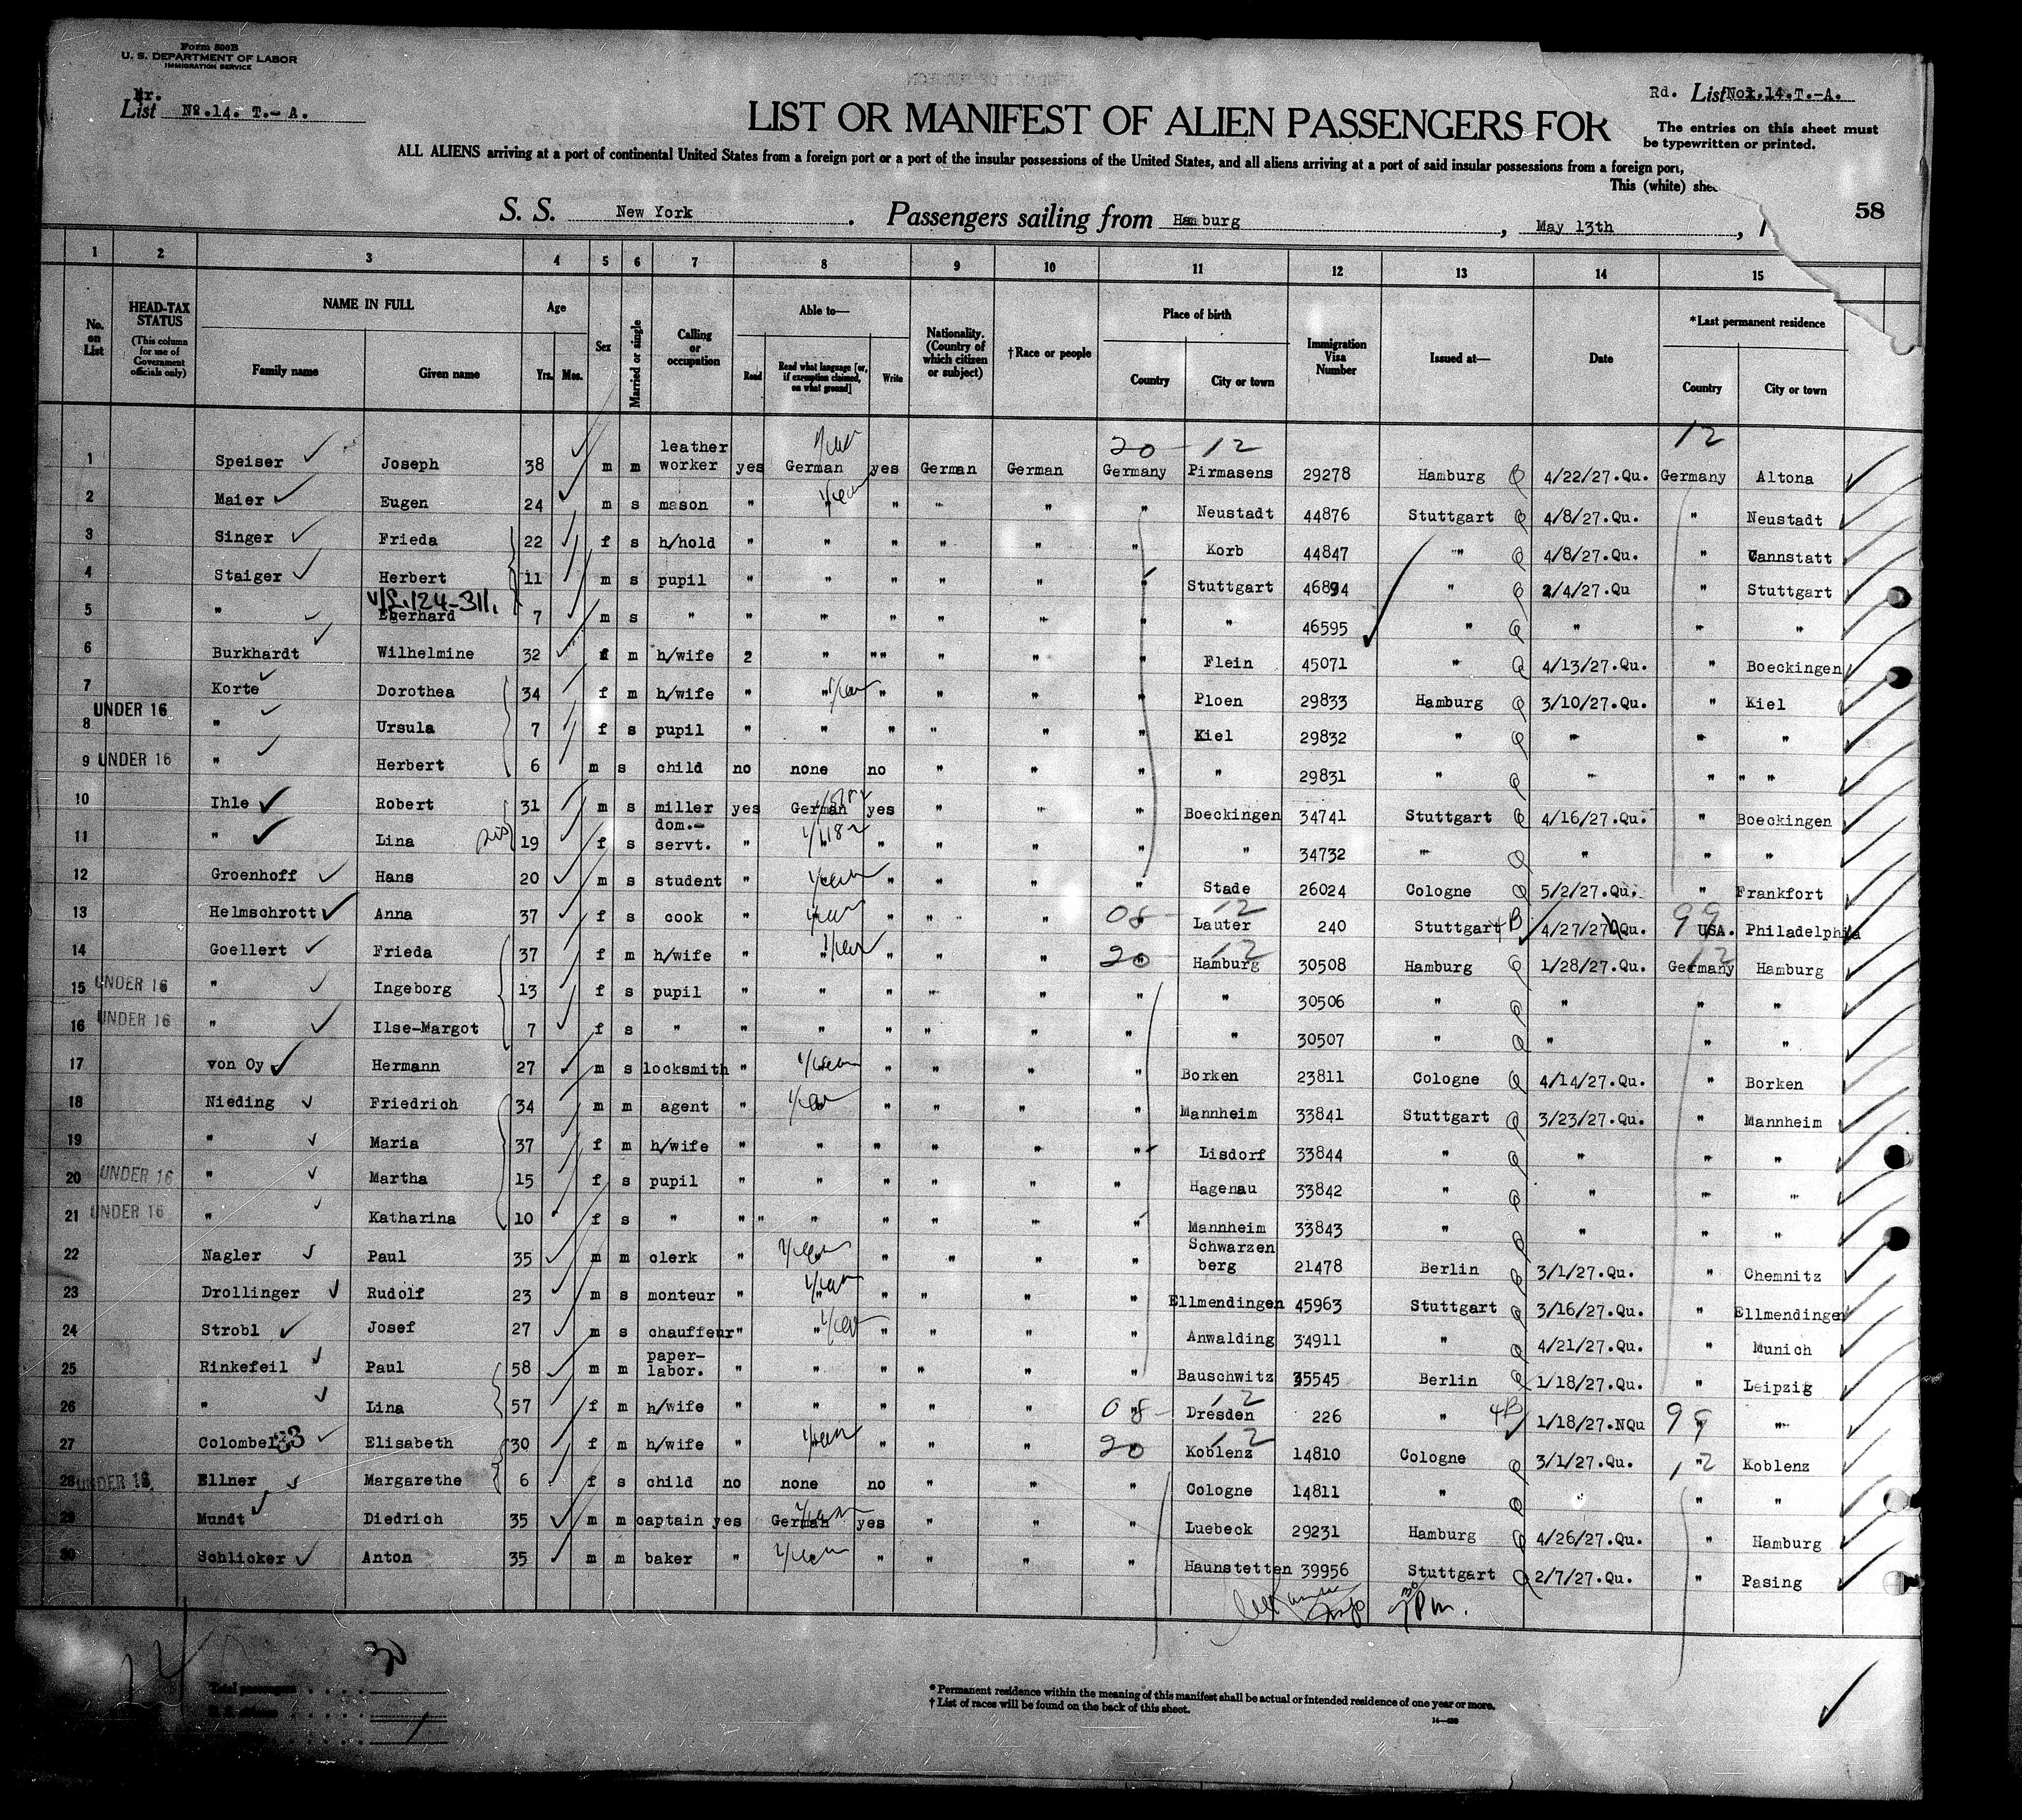 Form 500B
U. S. DEPARTMENT OF LABOR
IMMIGRATION SERVICE
Nr.
List No.14. T.-A.
Rd. List No.14.T.-A.
LIST OR MANIFEST OF ALIEN PASSENGERS FOR
The entries on this sheet must
be typewritten or printed.
ALL ALIENS arriving at a port of continental United States from a foreign port or a port of the insular possessions of the United States, and all aliens arriving at a port of said insular possessions from a foreign port,
This (white)
S. S. New York. Passengers sailing from Hamburg, May 13th,
58
1 2 3 4 5 6 7 8 9 10 11 12 13 14 15
No. on List
HEAD-TAX STATUS (This column for use of Government officials only)
NAME IN FULL Family name Given name
Age Yrs. Mos.
Sex
Married or single
Calling or occupation
Able to— Read Read what language [or, if exemption claimed, on what ground] Write
Nationality. (Country of which citizen or subject)
†Race or people
Place of birth Country City or town
Immigration Visa Number
Issued at—
Date
*Last permanent residence Country City or town
20 - 12 12
1 Speiser Joseph 38 m m leather worker yes German yes German German Germany Pirmasens 29278 Hamburg 4/22/27.Qu. Germany Altona
2 Maier Eugen 24 m s mason " " " " " " Neustadt 44876 Stuttgart 4/8/27.Qu. " Neustadt
3 Singer Frieda 22 f s h/hold " " " " " " Korb 44847 " 4/8/27.Qu. " Cannstatt
4 Staiger Herbert 11 m s pupil " " " " " " Stuttgart 46894 " 2/4/27.Qu " Stuttgart
124-311.
5 " Eberhard 7 m s " " " " " " " " 46595 " " " "
6 Burkhardt Wilhelmine 32 f m h/wife 2 " "" " " " Flein 45071 " 4/13/27.Qu. " Boeckingen
7 Korte Dorothea 34 f m h/wife " " " " " " Ploen 29833 Hamburg 3/10/27.Qu. " Kiel
UNDER 16
8 " Ursula 7 f s pupil " " " " " " Kiel 29832 " " " "
9 UNDER 16 " Herbert 6 m s child no none no " " " " 29831 " " " " "
10 Ihle Robert 31 m s miller yes German yes " " " Boeckingen 34741 Stuttgart 4/16/27.Qu. " Boeckingen
11 " Lina 19 f s dom.- servt. " " " " " " 34732 " " " "
12 Groenhoff Hans 20 m s student " " " " " Stade 26024 Cologne 5/2/27.Qu. " Frankfort
13 Helmschrott Anna 37 f s cook " " " " 08 - 12 Lauter 240 Stuttgart 4/27/27 Qu. 99 USA. Philadelphia
14 Goellert Frieda 37 f m h/wife " " " " " 20 " 12 Hamburg 30508 Hamburg 1/28/27.Qu. Germany 12 Hamburg
15 UNDER 16 " Ingeborg 13 f s pupil " " " " " " " 30506 " " " "
16 UNDER 16 " Ilse-Margot 7 f s " " " " " " " " 30507 " " " "
17 von Oy Hermann 27 m s locksmith " " " " " Borken 23811 Cologne 4/14/27.Qu. " Borken
18 Nieding Friedrich 34 m m agent " " " " " Mannheim 33841 Stuttgart 3/23/27.Qu. " Mannheim
19 " Maria 37 f m h/wife " " " " " " Lisdorf 33844 " " " "
20 UNDER 16 " Martha 15 f s pupil " " " " " " Hagenau 33842 " " " "
21 UNDER 16 " Katharina 10 f s " " " " " " " " Mannheim 33843 " " " "
22 Nagler Paul 35 m m clerk " " " " " " Schwarzen berg 21478 Berlin 3/1/27.Qu. " Chemnitz
23 Drollinger Rudolf 23 m s monteur " " " " " " Ellmendingen 45963 Stuttgart 3/16/27.Qu. " Ellmendingen
24 Strobl Josef 27 m s chauffeur " " " " " " Anwalding 34911 " 4/21/27.Qu. " Munich
25 Rinkefeil Paul 58 m m paper- labor. " " " " " " Bauschwitz 35545 Berlin 1/18/27.Qu. " Leipzig
26 " Lina 57 f m h/wife " " " " " 08 - 12 Dresden 226 " 4B 1/18/27.NQu 99 " "
27 Colombel 33 Elisabeth 30 f m h/wife " " " " 20 12 Koblenz 14810 Cologne 3/1/27.Qu. " 12 Koblenz
28 UNDER 16. Ellner Margarethe 6 f s child no none no " " " Cologne 14811 " " "
29 Mundt Diedrich 35 m m captain yes German yes " " " Luebeck 29231 Hamburg 4/26/27.Qu. " Hamburg
30 Schlicker Anton 35 m m baker " " " " " Haunstetten 39956 Stuttgart 2/7/27.Qu. " Pasing
30
Total passengers
* Permanent residence within the meaning of this manifest shall be actual or intended residence of one year or more.
† List of races will be found on the back of this sheet.